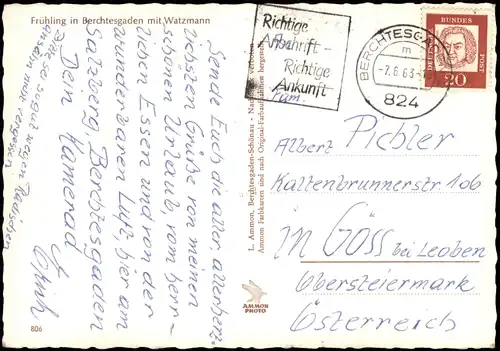 Frühling in Berchtesgaden mit Watzmann
Sende Euch die aller allerherz-
lichsten Grüße von meinen
Urlaub, vom herr-
lichen Essen und von der
wunderbaren Luft, hier am
Salzberg, Berchtesgaden
Dein Kamerad
806
L. Ammon, Berchtesgaden-Schönau - Nachdruck verboten
Ammon Farbkarten sind nach Original-Farbaufnahmen hergestellt
AMMON
PHOTO
Richtige
Anschrift -
Richtige
Ankunft
Fam.
BERCHTESGADEN
m
-7.6.63
824
DEUTSCHE
BUNDES
POST
20
Albert Pichler
Kaltenbrunnerstr. 106
in Göss bei Leoben
Obersteiermark
Österreich